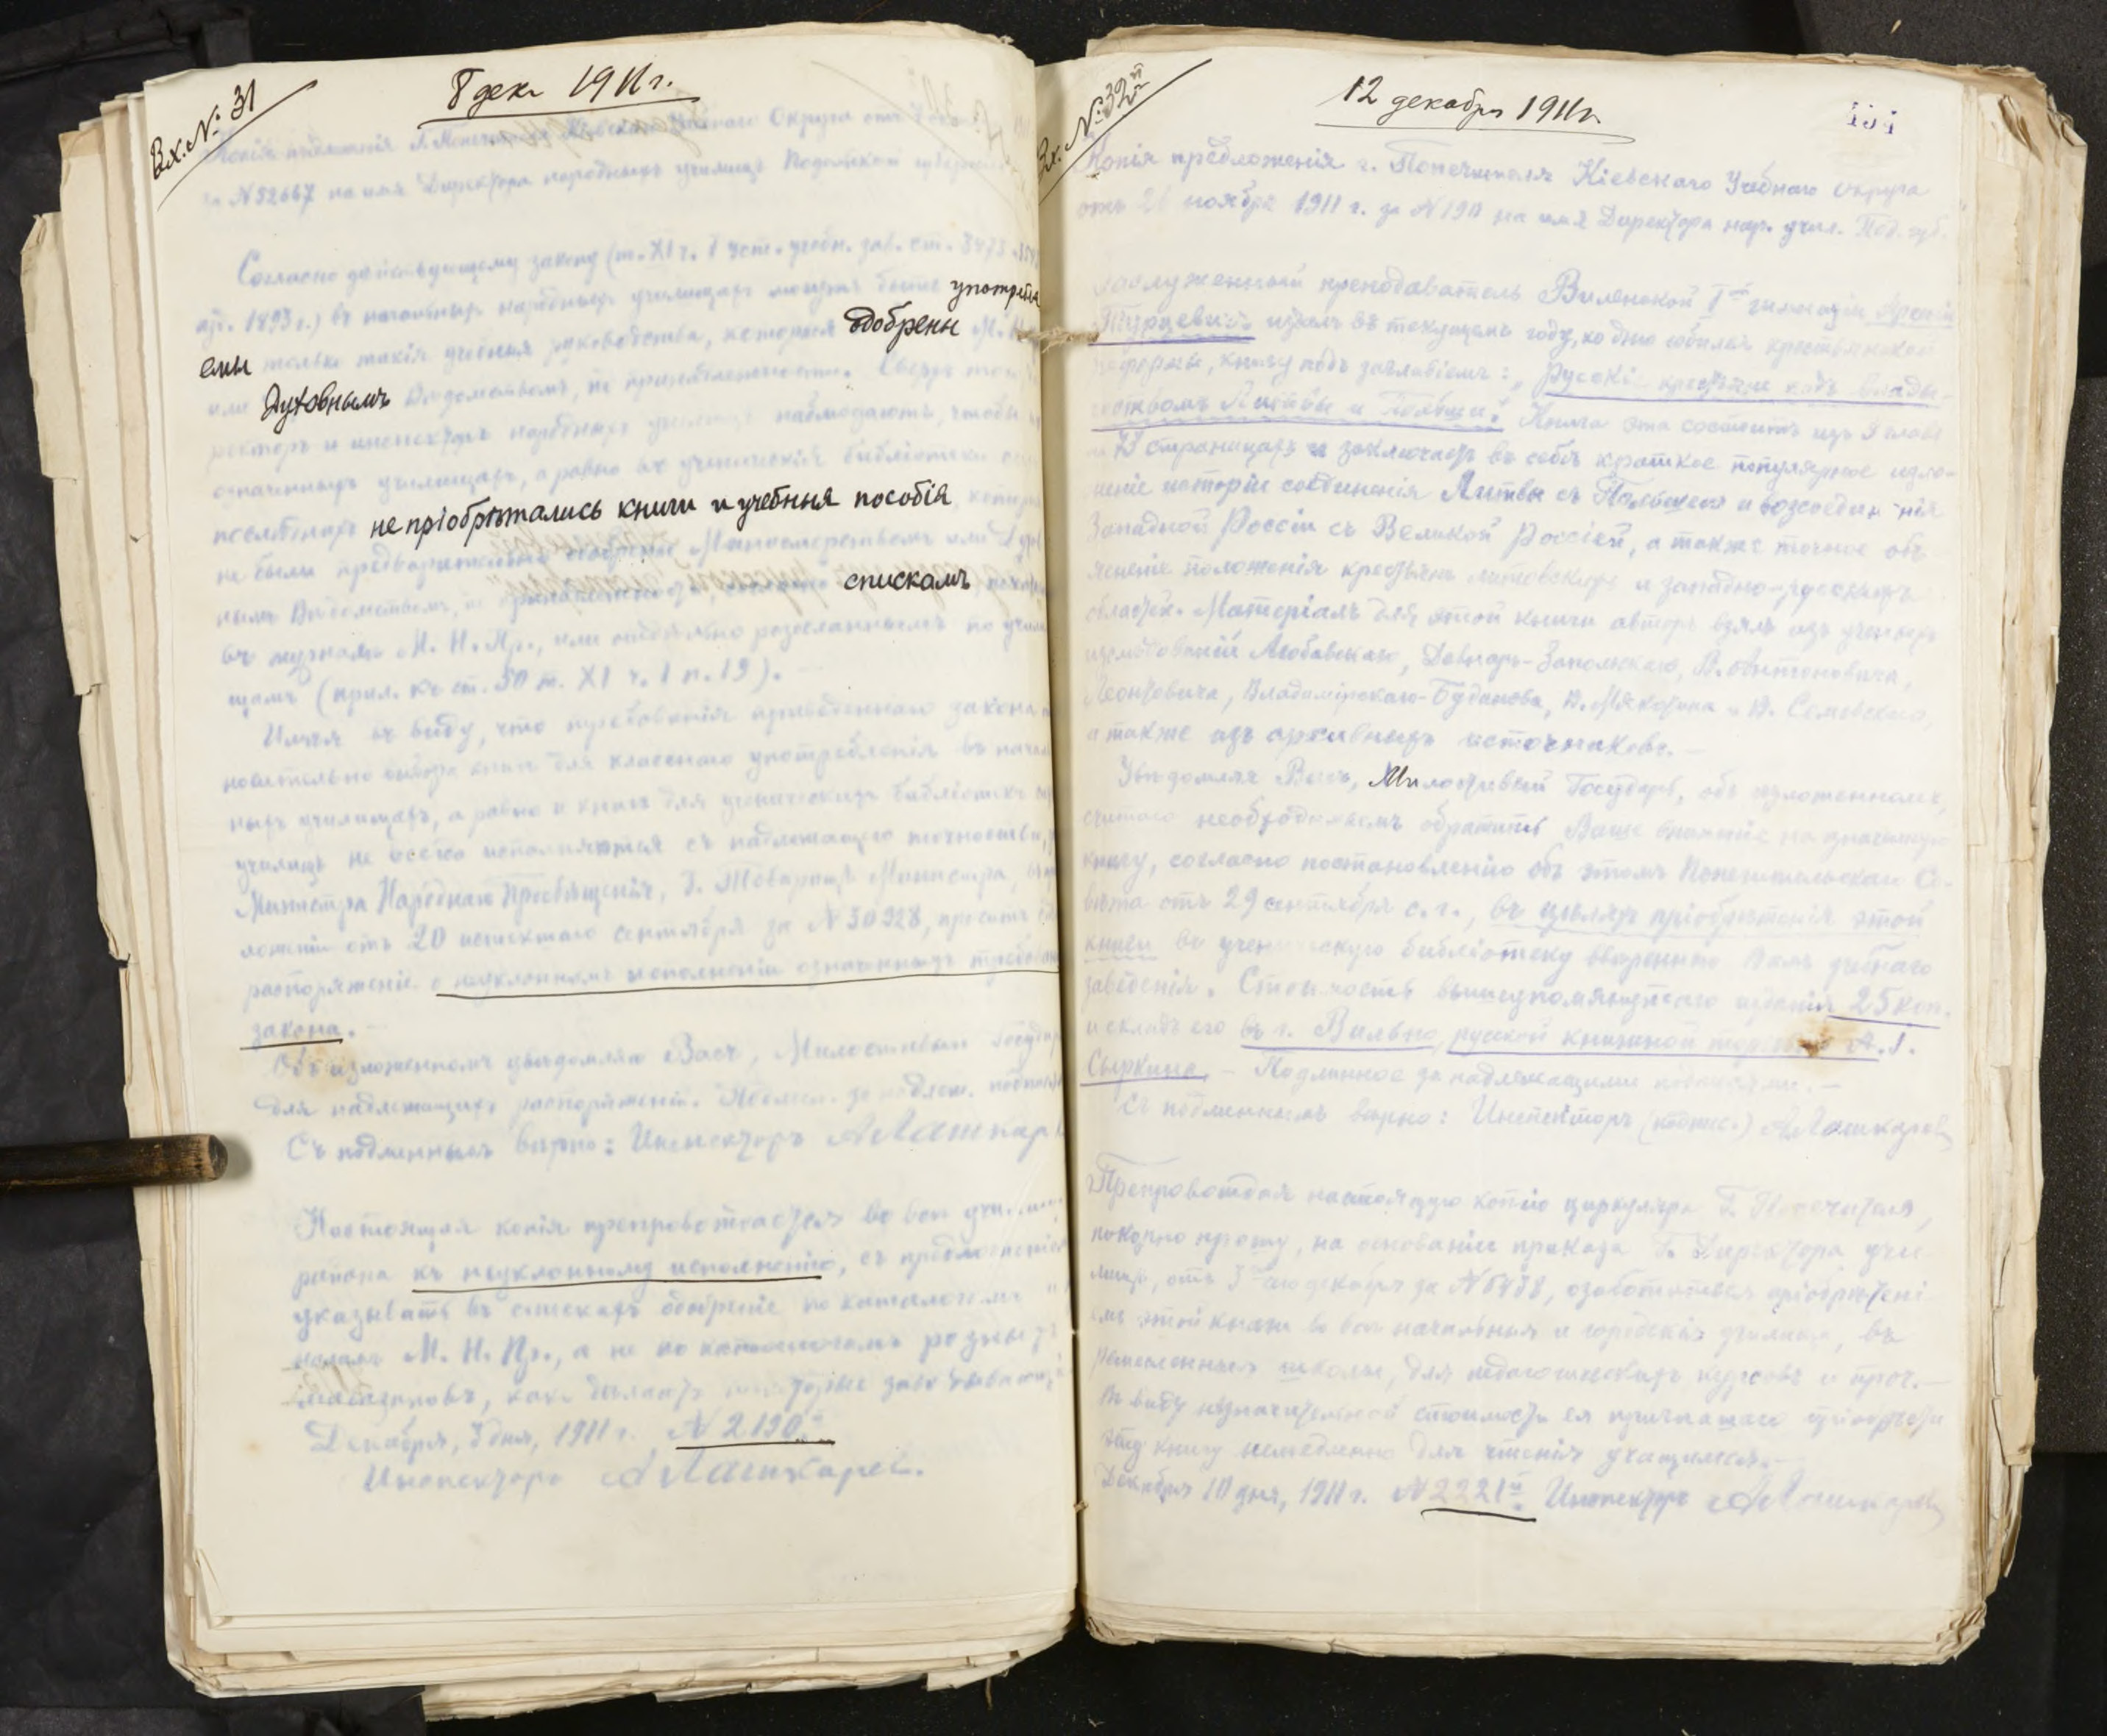 Вх. № 31
8 дек 1911 г.
Копія предложенія Г. Попечителя Кіевскаго Учебнаго Округа отъ
за № 52667 на имя Директора народныхъ училищъ Подольской губерніи
Согласно дѣйствующему закону (т. XI ч. I уст. учебн. зав. ст. 3473
1893 г.) въ начальныхъ народныхъ училищахъ могутъ быть употребля
емы только такія учебныя руководства, которыя одобрены М. Н.
или Духовнымъ Вѣдомствомъ, по принадлежности. Сверхъ того
ректоръ и инспекторъ народныхъ училищъ наблюдаютъ, чтобы
означенныхъ училищахъ, а равно въ ученическія библіотеки
послѣднихъ не пріобрѣтались книги и учебныя пособія, которыя
не были предварительно одобрены Министерствомъ или Духов
нымъ Вѣдомствомъ, по принадлежности, согласно спискамъ,
въ журналѣ М. Н. Пр., или отдѣльно разосланнымъ по учили
щамъ (прил. къ ст. 50 т. XI ч. I п. 19).
Имѣя въ виду, что требованія приведеннаго закона
носительно выбора книгъ для класснаго употребленія въ началь
ныхъ училищахъ, а равно и книгъ для ученическихъ библіотекъ
училищъ не всегда исполняются съ надлежащею точностью,
Министра Народнаго Просвѣщенія, Г. Товарищъ Министра,
ложеніи отъ 20 истекшаго сентября за № 30928, проситъ
распоряженіе о неуклонномъ исполненіи означенныхъ требован
закона.
Объ изложенномъ увѣдомляю Васъ, Милостивый Государь
для надлежащихъ распоряженій. Подлин. за надлеж. подписью
Съ подлиннымъ вѣрно: Инспекторъ А Лашкар
Настоящая копія препровождается во всѣ училища
района къ неуклонному исполненію, съ предложеніемъ
указывать въ спискахъ одобреніе по каталогамъ
М. Н. Пр., а не по каталогамъ разныхъ
магазиновъ, какъ дѣлаютъ некоторые завѣдывающ
Декабря, 3 дня, 1911 г. № 2190.
Инспекторъ А Лашкарев.
Вх. № 32й
12 декабря 1911 г.
Копія предложенія г. Попечителя Кіевскаго Учебнаго Округа
отъ 26 ноября 1911 г. за № 190 на имя Директора нар. учил. Под. губ.
Заслуженный преподаватель Виленской Iй гимназіи Арсеній
Турцевичъ издалъ въ текущемъ году, ко дню юбилея крестьянской
реформы, книгу подъ заглавіемъ: „Русскіе крестьяне подъ влады-
чествомъ Литвы и Польши". Книга эта состоитъ изъ 9 главъ
страницахъ и заключаетъ въ себѣ краткое популярное изло-
женіе исторіи соединенія Литвы съ Польшею и возсоединенія
Западной Россіи съ Великой Россіей, а также точное объ-
ясненіе положенія крестьянъ литовскихъ и западно-русскихъ
областей. Матеріалъ для этой книги авторъ взялъ изъ ученыхъ
изслѣдованій Любавскаго, Довнаръ-Запольскаго, В. Антоновича,
Леонтовича, Владимірскаго-Буданова, В. Мякотина и В. Семевскаго,
а также изъ архивныхъ источниковъ.—
Увѣдомляя Васъ, Милостивый Государь, объ изложенномъ,
считаю необходимымъ обратить Ваше вниманіе на означенную
книгу, согласно постановленію объ этомъ Попечительскаго Со-
вѣта отъ 29 сентября с. г., въ цѣляхъ пріобрѣтенія этой
книги въ ученическую библіотеку ввѣреннаго Вамъ учебнаго
заведенія. Стоимость вышеупомянутаго изданія 25 коп.
и складъ его въ г. Вильно, русской книжной торговлѣ А. Г.
Сыркина. — Подлинное за надлежащими подписями.—
Съ подлиннымъ вѣрно: Инспекторъ (подпис.) А Лашкаревъ
Препровождая настоящую копію циркуляра Г. Попечителя,
покорно прошу, на основаніи приказа Г. Директора учи-
лищъ, отъ 3 сего декабря за № 6478, озаботиться пріобрѣтені
емъ этой книги во всѣ начальныя и городскія училища, въ
ремесленныя школы, для педагогическихъ курсовъ и проч.—
Въ виду незначительной стоимости ея приглашаю пріобрѣсти
эту книгу немедленно для чтенія учащимся.—
Декабря 10 дня, 1911 г. № 2221й Инспекторъ А Лашкаревъ